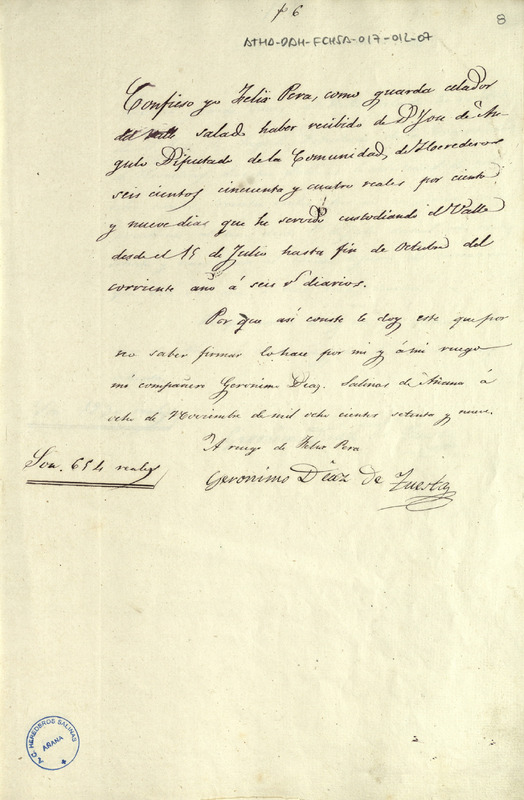 + 6
8
ATHA-DAH-FCHSA-017-012-07
Confieso yo Felix Pera, como guarda celador
del Valle salado haber recibido de D. Jose de An-
gulo Diputado de la Comunidad, de Herederos
seis cientos cincuenta y cuatro reales por ciento
y nueve dias que he servido custodiando el Valle
desde el 15 de Julio hasta fin de Octubre del
corriente año á seis rs diarios.
Por que asi conste le doy este que por
no saber firmar lo hace por mi y á mi ruego
mi compañero Geronimo Diaz. Salinas de Añana á
ocho de Noviembre de mil ocho cientos setenta y nueve.
A ruego de Felix Pera
Son. 654 reales
Geronimo Diaz de Tuesta
C. HEREDEROS SALINAS
AÑANA